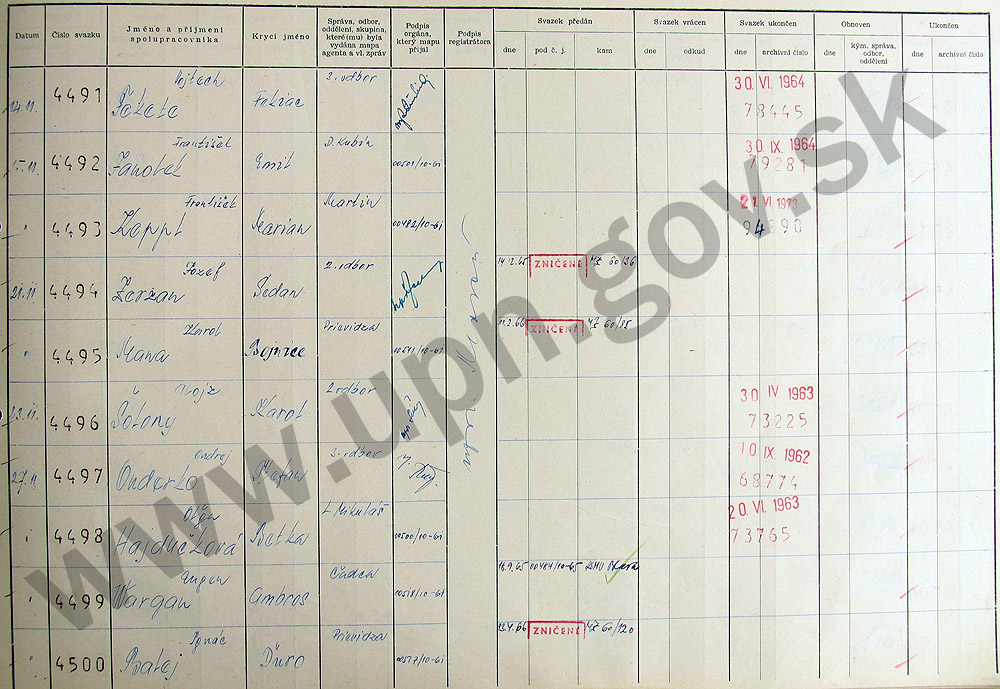 Datum
Číslo svazku
Jméno a příjmení
spolupracovníka
Krycí jméno
Správa, odbor,
oddělení, skupina,
které(mu) byla
vydána mapa
agenta a vl. zpráv
Podpis
orgána,
který mapu
přijal
Podpis
registrátora
Svazek předán
dne
pod č. j.
kam
Svazek vrácen
dne
odkud
Svazek ukončen
dne
archivní číslo
Obnoven
dne
kým, správa,
odbor,
oddělení
Ukončen
dne
archivní číslo
4491
Vojtech
Fekiac
2. odbor
30 VI. 1964
78445
15.11.
4492
František
Janotek
Emil
D. Kubín
00501/10-61
30 IX. 1964
79281
4493
František
Zoppt
Marian
Martin
00482/10-61
94890
21.11.
4494
Jozef
Zoržan
Sedan
2. odbor
14.12.65
ZNIČENÉ
60/26
4495
Karol
Mama
Bojnice
Prievidza
00511/10-61
11.2.66
ZNIČENÉ
60/85
23.11.
4496
Alojz
Solony
Karol
2. odbor
30 IV 1963
73225
27.11.
4497
Ondrej
Onderko
Štefan
3. odbor
10 IX. 1962
68774
4498
Oľga
Hajdučková
Betka
L. Mikuláš
00500/10-61
20. VI. 1963
73765
4499
Eugen
Wargan
Ambros
Čadca
00518/10-61
16.9.65
00484/10-65
4500
Ignác
Balaj
Ďuro
Prievidza
00517/10-61
13.4.66
ZNIČENÉ
60/120
www.upn.gov.sk